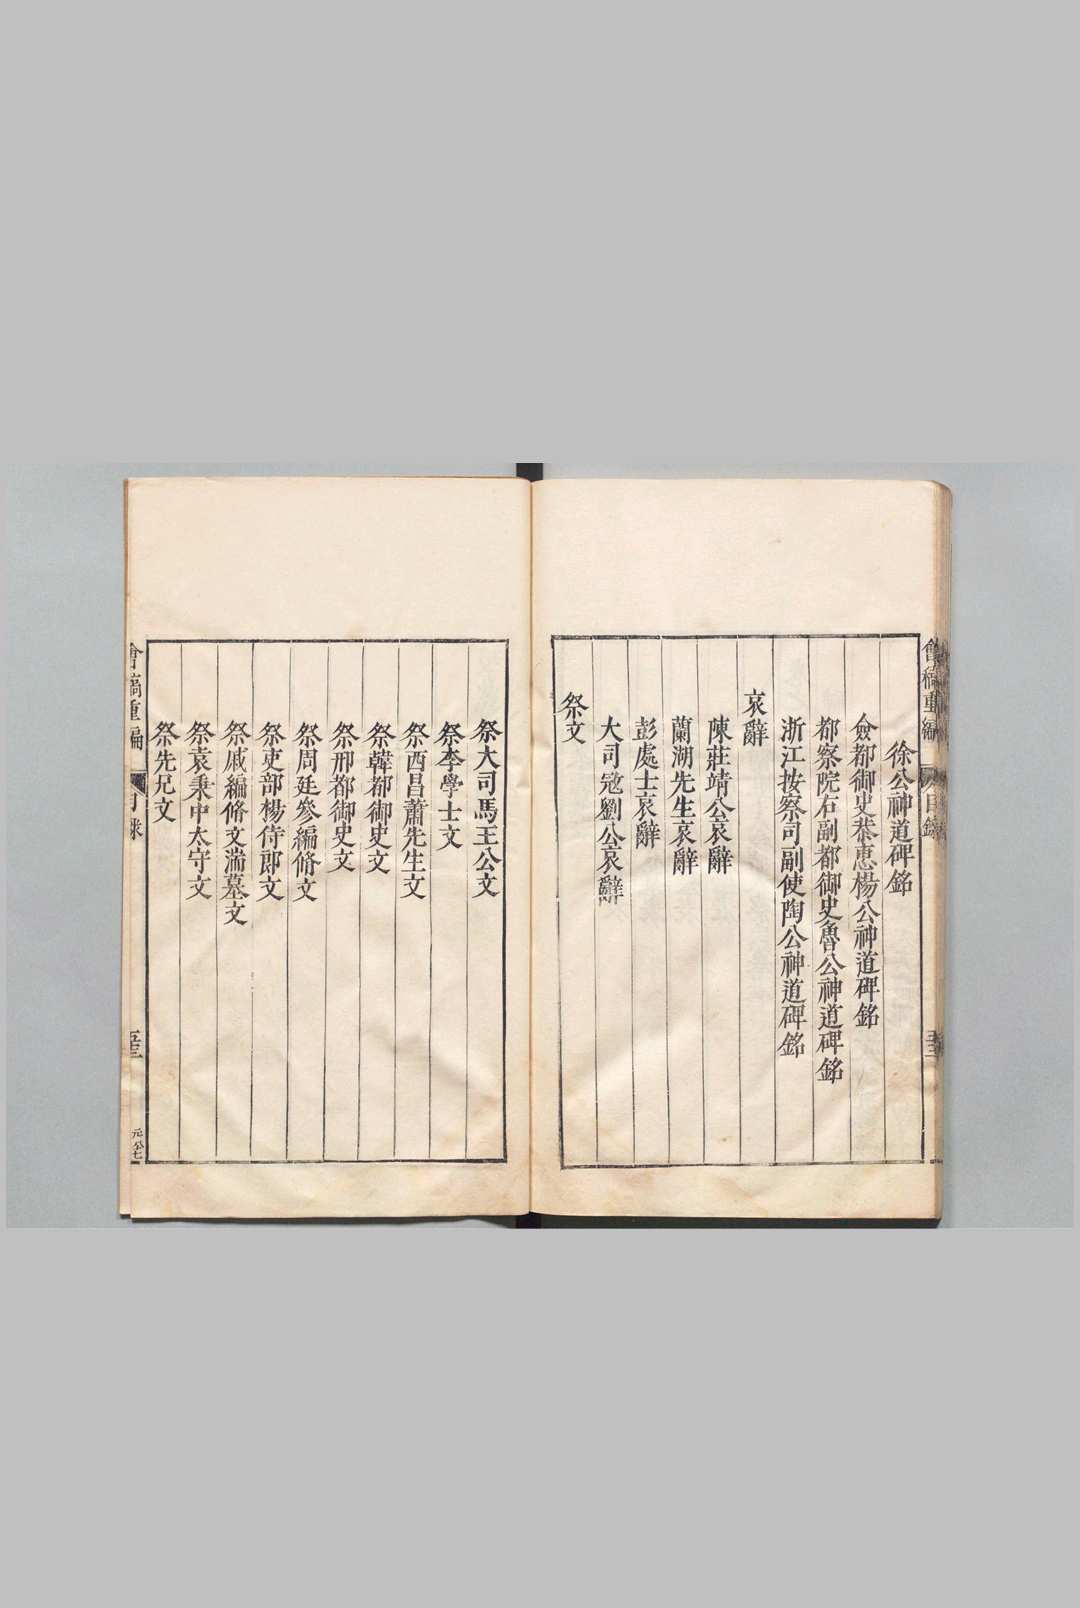 會稿重編
目錄
徐公神道碑銘
僉都御史恭惠楊公神道碑銘
都察院右副都御史魯公神道碑銘
浙江按察司副使陶公神道碑銘
哀辭
陳莊靖公哀辭
蘭湖先生哀辭
彭處士哀辭
大司寇劉公哀辭
祭文
祭大司馬王公文
祭李學士文
祭西昌蕭先生文
祭韓都御史文
祭邢都御史文
祭周廷參編脩文
祭吏部楊侍郎文
祭戚編脩文湍墓文
祭袁秉中太守文
祭先兄文
會稿重編
目錄